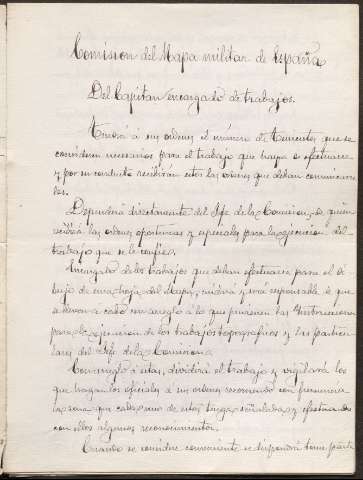 Comision del Mapa militar de España
Del Capitan encargado de trabajos.
Tendrá á sus ordenes el número de Tenientes que se
consideren necesarios para el trabajo que haya de efectuarse
y por su conducto recibirán estos las ordenes que deban comunicarse
les.
Dependerá directamente del Jefe de la Comision, de quien
recibirá las ordenes oportunas y especiales para la ejecucion del
trabajo que se le confie.
Encargado de los trabajos que deban efectuarse para el di
bujo de una hoja del Mapa, cuidará y será responsable de que
se lleven á cabo con arreglo á lo que previenen las Instrucciones
para la ejecucion de los trabajos topograficos y las particu
lares del Jefe de la Comision.
Con arreglo á estas, dividirá el trabajo y vigilará los
que hagan los oficiales á sus ordenes recorriendo con frecuencia
la zona que cada uno de estos tenga señalada y efectuando
con ellos algunos reconocimientos.
Cuando se considere conveniente se dispondrá tome parte